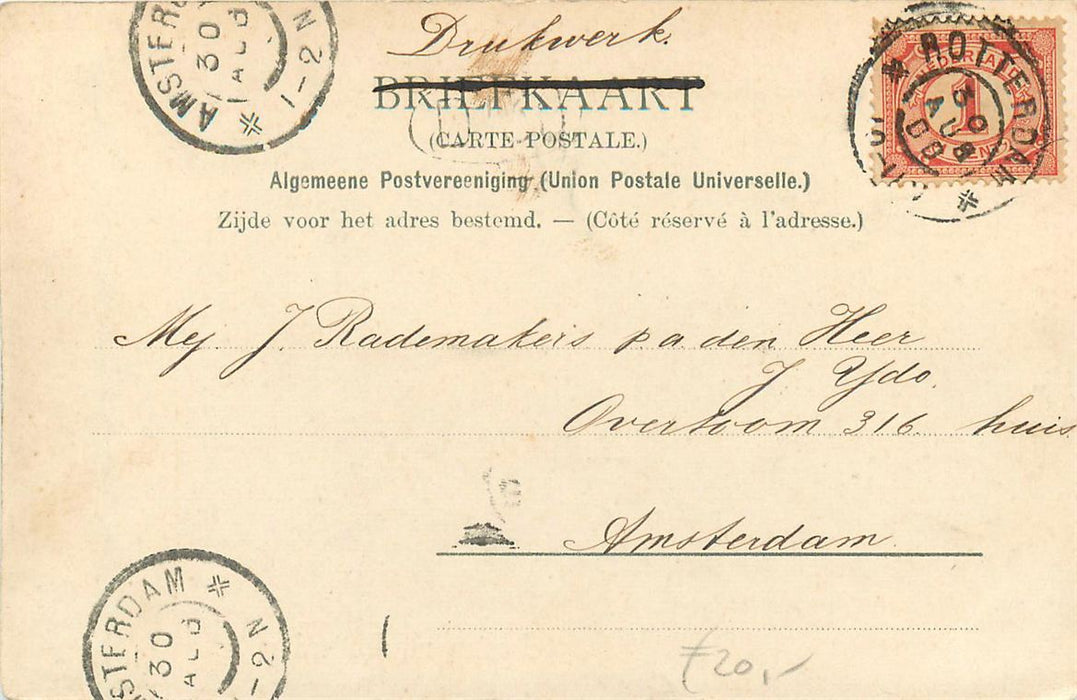 Drukwerk.
BRIEFKAART
(CARTE POSTALE.)
Algemeene Postvereeniging (Union Postale Universelle.)
Zijde voor het adres bestemd. — (Côté réservé à l'adresse.)
AMSTERD
30
1-2 N
ROTTERDAM
30
AUG
1
CENT
Mej. J. Rademakers p a den Heer
J. Ydo.
Overtoom 316 huis
Amsterdam.
STERDAM
30
1-2 N
ƒ20,-